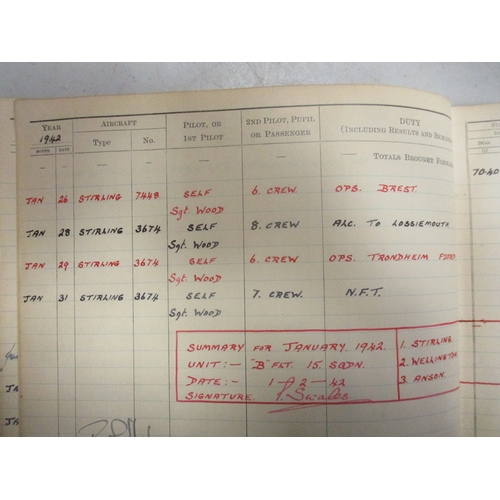 YEAR AIRCRAFT PILOT, OR 2ND PILOT, PUPIL DUTY
1942 1ST PILOT OR PASSENGER (INCLUDING RESULTS AND
MONTH DATE Type No.
— — — — — — TOTALS BROUGHT
JAN 26 STIRLING 7448 SELF 6. CREW. OPS. BREST.
Sgt. WOOD
JAN 28 STIRLING 3674 SELF 8. CREW. A.L.C. TO LOSSIEMOUTH
Sgt. WOOD
JAN 29 STIRLING 3674 SELF 6. CREW. OPS. TRONDHEIM
Sgt. WOOD
JAN 31 STIRLING 3674 SELF 7. CREW. N.F.T.
Sgt. WOOD
70.40
SUMMARY FOR JANUARY. 1942. 1. STIRLING
UNIT:- "B" FLT. 15. SQDN. 2. WELLINGTON
DATE:- 1 — 2 — 42 3. ANSON.
SIGNATURE. P. Swales